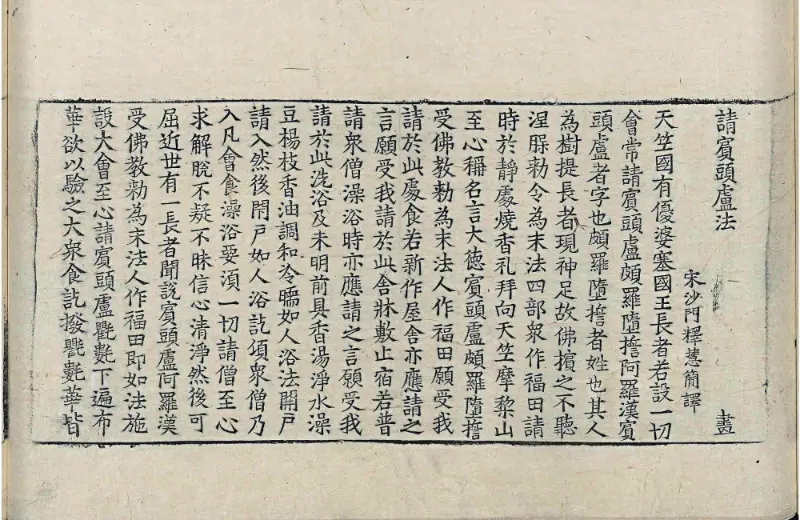 請賓頭盧法 晝
宋沙門釋慧簡譯
天竺國有優婆塞國王長者若設一切
會常請賓頭盧頗羅墮擔阿羅漢賓
頭盧者字也頗羅墮擔者姓也其人
為樹提長者現神足故佛擯之不聽
涅脲勑令為末法四部衆作福田請
時於靜處燒香礼拜向天竺摩黎山
至心稱名言大徳賓頭盧頗羅墮擔
受佛教勑為末法人作福田願受我
請於此處食若新作屋舍亦應請之
言願受我請於此舍牀敷止宿若普
請衆僧澡浴時亦應請之言願受我
請於此洗浴及未明前具香湯淨水澡
豆楊枝香油調和冷暖如人浴法開戶
請入然後閇戶如人浴訖頃衆僧乃
入凡會食澡浴要湏一切請僧至心
求解脫不疑不昧信心清淨然後可
屈近世有一長者聞說賓頭盧阿羅漢
受佛教勑為末法人作福田即如法施
設大會至心請賓頭盧氍㲣下遍布
華欲以驗之大衆食訖撥氍㲣華皆